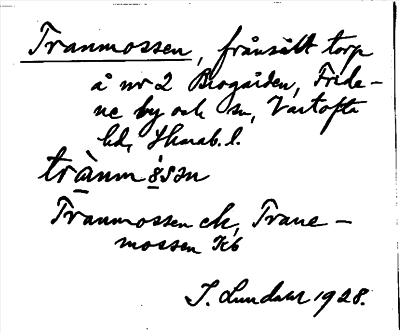 Tranmossen, frånsålt torp
å nr 2 Brogården, Fride-
ne by och sn, Vartofta
hd, Skarab. l.
trànmo̊sən
Tranmossen ek, Trane-
mossen Kb
I. Lundahl 1928.